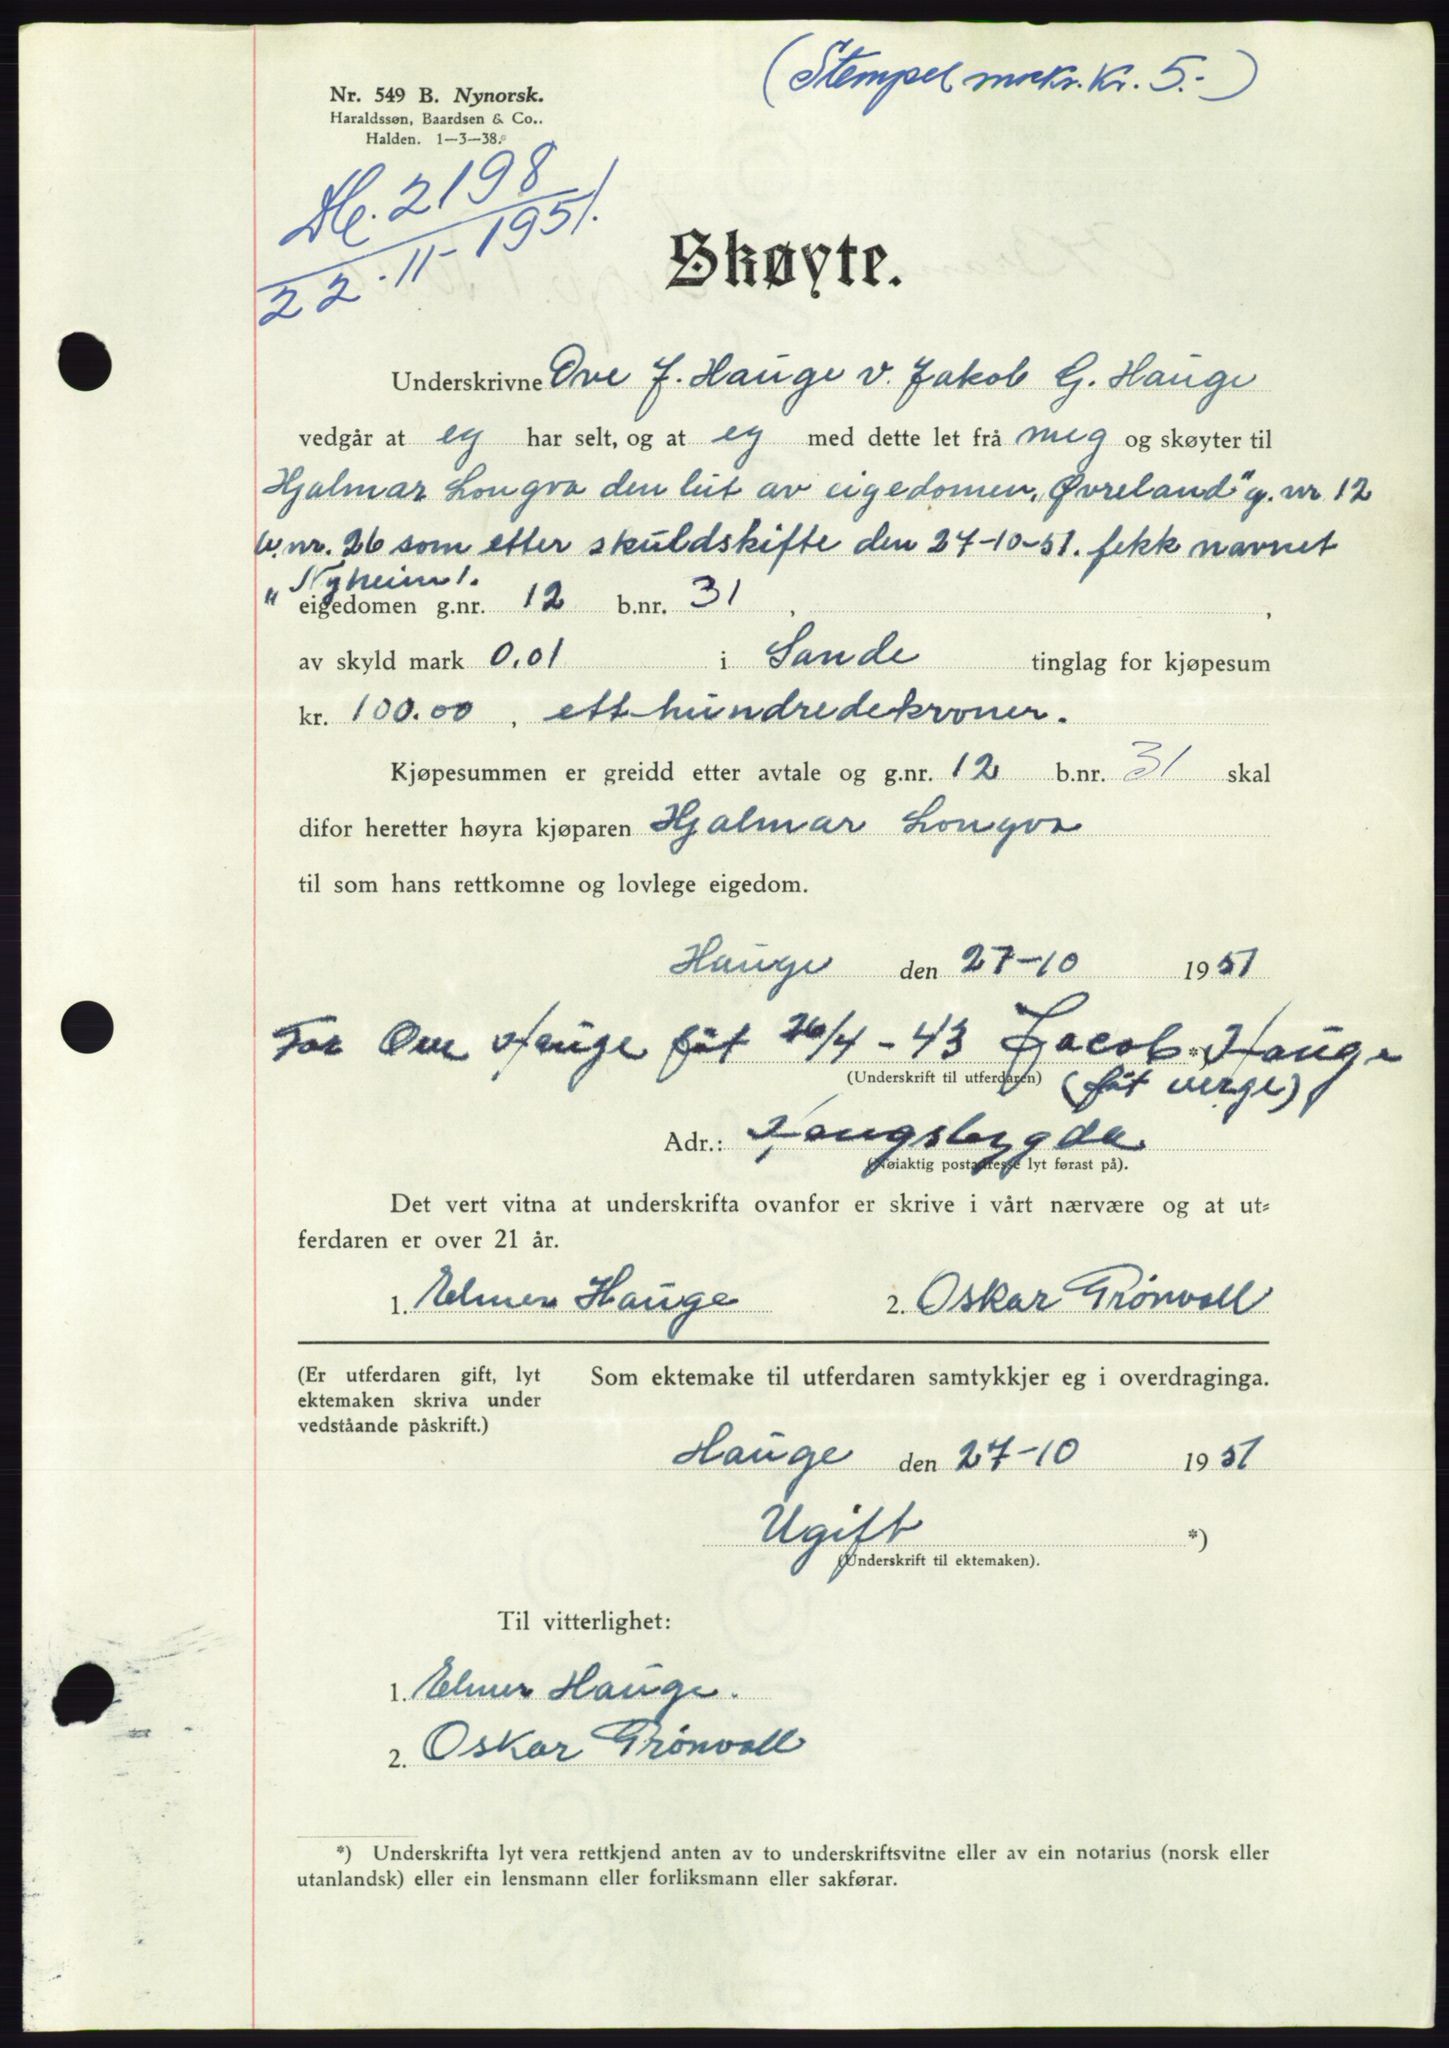 (Stempelmrkr. Kr. 5.-)
Nr. 549 B. Nynorsk.
Haraldssøn, Baardsen & Co..
Halden. 1—3—38.
2198
22.-11-1951.
Skøyte.
Underskrivne Ove J. Hauge v. Jakob G. Hauge
vedgår at eg har selt, og at eg med dette let frå meg og skøyter til
Hjalmar Longva den lut av eigedomen, "Øvreland" g. nr 12
b. nr. 26 som etter skuldskifte den 27-10-51. fekk navnet
"Nyheim 1.
eigedomen g.nr. 12 b.nr. 31 , ,
av skyld mark 0,01 i Sande tinglag for kjøpesum
kr. 100.00 , ett hundredekroner.
Kjøpesummen er greidd etter avtale og g.nr. 12 b.nr. 31 skal
difor heretter høyra kjøparen Hjalmar Longva
til som hans rettkomne og lovlege eigedom.
Hauge den 27-10 1951
For Ove Hauge föt 26/4-43 Jacob Hauge *)
(Underskrift til utferdaren) (föt verge)
Adr.: Haugsbygda
(Nøiaktig postadresse lyt førast på).
Det vert vitna at underskrifta ovanfor er skrive i vårt nærvære og at ut=
ferdaren er over 21 år.
1. Elmer Hauge 2. Oskar Grönvoll
(Er utferdaren gift, lyt Som ektemake til utferdaren samtykkjer eg i overdraginga.
ektemaken skriva under
vedståande påskrift.)
Hauge den 27-10 1951
Ugift *)
(Underskrift til ektemaken).
Til vitterlighet:
1. Elmer Hauge.
2. Oskar Grönvoll
*) Underskrifta lyt vera rettkjend anten av to underskriftsvitne eller av ein notarius (norsk eller
utanlandsk) eller ein lensmann eller forliksmann eller sakførar.